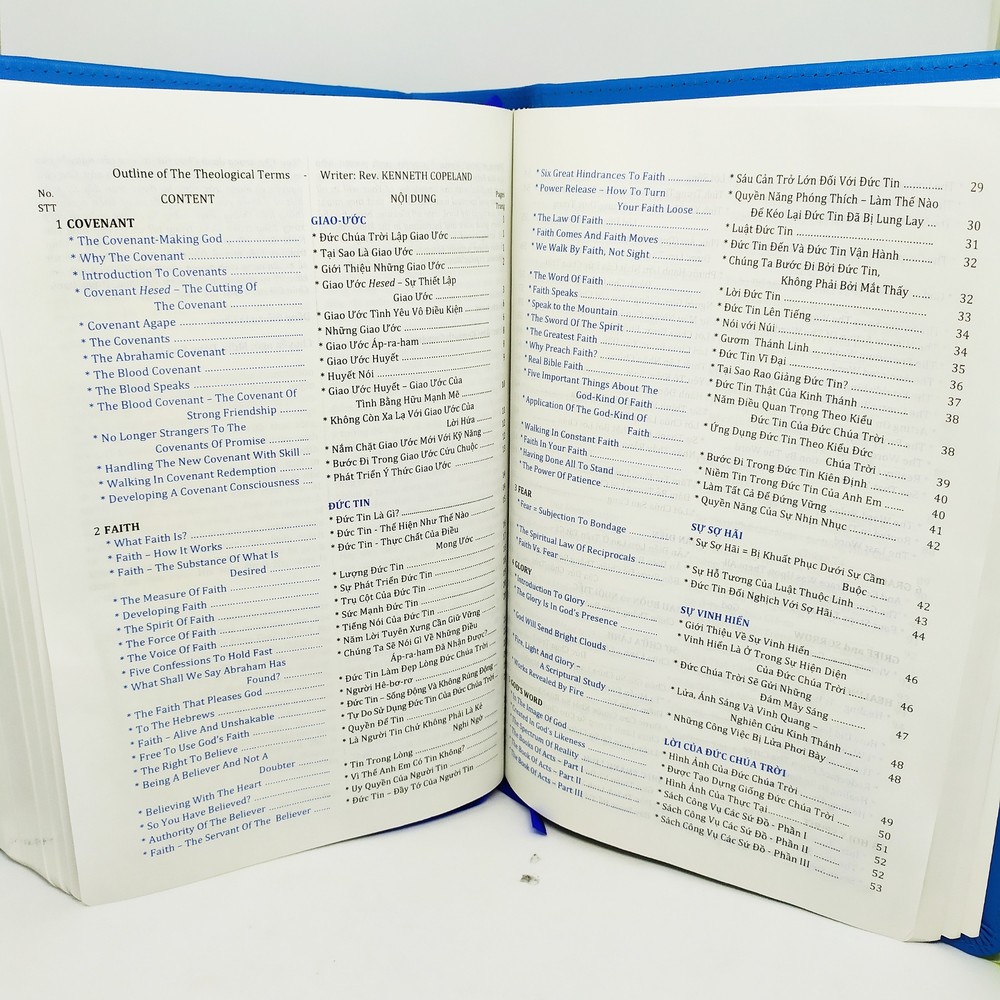 Outline of The Theological Terms - Writer: Rev. KENNETH COPELAND
No.
STT
CONTENT
NỘI DUNG
Pages
Trang
1 COVENANT
* The Covenant-Making God
* Why The Covenant
* Introduction To Covenants
* Covenant Hesed – The Cutting Of
The Covenant
* Covenant Agape
* The Covenants
* The Abrahamic Covenant
* The Blood Covenant
* The Blood Speaks
* The Blood Covenant – The Covenant Of
Strong Friendship
* No Longer Strangers To The
Covenants Of Promise
* Handling The New Covenant With Skill
* Walking In Covenant Redemption
* Developing A Covenant Consciousness
2 FAITH
* What Faith Is?
* Faith – How It Works
* Faith – The Substance Of What Is
Desired
* The Measure Of Faith
* Developing Faith
* The Spirit Of Faith
* The Force Of Faith
* The Voice Of Faith
* Five Confessions To Hold Fast
* What Shall We Say Abraham Has
Found?
* The Faith That Pleases God
* To The Hebrews
* Faith – Alive And Unshakable
* Free To Use God's Faith
* The Right To Believe
* Being A Believer And Not A
Doubter
* Believing With The Heart
* So You Have Believed?
* Authority Of The Believer
* Faith – The Servant Of The Believer
GIAO-ƯỚC
* Đức Chúa Trời Lập Giao Ước
* Tại Sao Là Giao Ước
* Giới Thiệu Những Giao Ước
* Giao Ước Hesed – Sự Thiết Lập
Giao Ước
* Giao Ước Tình Yêu Vô Điều Kiện
* Những Giao Ước
* Giao Ước Áp-ra-ham
* Giao Ước Huyết
* Huyết Nói
* Giao Ước Huyết – Giao Ước Của
Tình Bằng Hữu Mạnh Mẽ
* Không Còn Xa Lạ Với Giao Ước Của
Lời Hứa
* Nắm Chặt Giao Ước Mới Với Kỹ Năng
* Bước Đi Trong Giao Ước Cứu Chuộc
* Phát Triển Ý Thức Giao Ước
ĐỨC TIN
* Đức Tin Là Gì?
* Đức Tin - Thể Hiện Như Thế Nào
* Đức Tin - Thực Chất Của Điều
Mong Ước
* Lượng Đức Tin
* Sự Phát Triển Đức Tin
* Trụ Cột Của Đức Tin
* Sức Mạnh Đức Tin
* Tiếng Nói Của Đức Tin
* Năm Lời Tuyên Xưng Cần Giữ Vững
* Chúng Ta Sẽ Nói Gì Về Những Điều
Áp-ra-ham Đã Nhận Được?
* Đức Tin Làm Đẹp Lòng Đức Chúa Trời
* Người Hê-bơ-rơ
* Đức Tin – Sống Động Và Không Rúng Động
* Tự Do Sử Dụng Đức Tin Của Đức Chúa Trời
* Quyền Để Tin
* Là Người Tin Chứ Không Phải Là Kẻ
Nghi Ngờ
* Tin Trong Lòng
* Vì Thế Anh Em Có Tin Không?
* Uy Quyền Của Người Tin
* Đức Tin – Đầy Tớ Của Người Tin
* Six Great Hindrances To Faith
* Power Release – How To Turn
Your Faith Loose
* The Law Of Faith
* Faith Comes And Faith Moves
* We Walk By Faith, Not Sight
* The Word Of Faith
* Faith Speaks
* Speak to the Mountain
* The Sword Of The Spirit
* The Greatest Faith
* Why Preach Faith?
* Real Bible Faith
* Five Important Things About The
God-Kind Of Faith
* Application Of The God-Kind Of
Faith
* Walking In Constant Faith
* Faith In Your Faith
* Having Done All To Stand
* The Power Of Patience
3 FEAR
* Fear = Subjection To Bondage
* The Spiritual Law Of Reciprocals
* Faith Vs. Fear
4 GLORY
* Introduction To Glory
* The Glory Is In God's Presence
* God Will Send Bright Clouds
* Fire, Light And Glory –
A Scriptural Study
* Works Revealed By Fire
GOD'S WORD
In The Image Of God
Created In God's Likeness
The Spectrum Of Reality
The Books Of Acts – Part I
The Book Of Acts – Part II
The Book Of Acts – Part III
* Sáu Cản Trở Lớn Đối Với Đức Tin 29
* Quyền Năng Phóng Thích – Làm Thế Nào
Để Kéo Lại Đức Tin Đã Bị Lung Lay 30
* Luật Đức Tin 31
* Đức Tin Đến Và Đức Tin Vận Hành 32
* Chúng Ta Bước Đi Bởi Đức Tin,
Không Phải Bởi Mắt Thấy 32
* Lời Đức Tin 33
* Đức Tin Lên Tiếng 34
* Nói với Núi 34
* Gươm Thánh Linh 35
* Đức Tin Vĩ Đại 36
* Tại Sao Rao Giảng Đức Tin? 37
* Đức Tin Thật Của Kinh Thánh 38
* Năm Điều Quan Trọng Theo Kiểu
Đức Tin Của Đức Chúa Trời 38
* Ứng Dụng Đức Tin Theo Kiểu Đức
Chúa Trời 39
* Bước Đi Trong Đức Tin Kiên Định 40
* Niềm Tin Trong Đức Tin Của Anh Em 40
* Làm Tất Cả Để Đứng Vững 41
* Quyền Năng Của Sự Nhịn Nhục 42
SỰ SỢ HÃI
* Sự Sợ Hãi = Bị Khuất Phục Dưới Sự Cầm
Buộc 42
* Sự Hỗ Tương Của Luật Thuộc Linh 43
* Đức Tin Đối Nghịch Với Sợ Hãi 44
SỰ VINH HIỂN
* Giới Thiệu Về Sự Vinh Hiển
* Vinh Hiển Là Ở Trong Sự Hiện Diện
Của Đức Chúa Trời 46
* Đức Chúa Trời Sẽ Gửi Những
Đám Mây Sáng 46
* Lửa, Ánh Sáng Và Vinh Quang –
Nghiên Cứu Kinh Thánh 47
* Những Công Việc Bị Lửa Phơi Bày 48
48
LỜI CỦA ĐỨC CHÚA TRỜI
* Hình Ảnh Của Đức Chúa Trời 49
* Được Tạo Dựng Giống Đức Chúa Trời 50
* Hình Ảnh Của Thực Tại 51
* Sách Công Vụ Các Sứ Đồ - Phần I 52
* Sách Công Vụ Các Sứ Đồ - Phần II 52
* Sách Công Vụ Các Sứ Đồ - Phần III 53